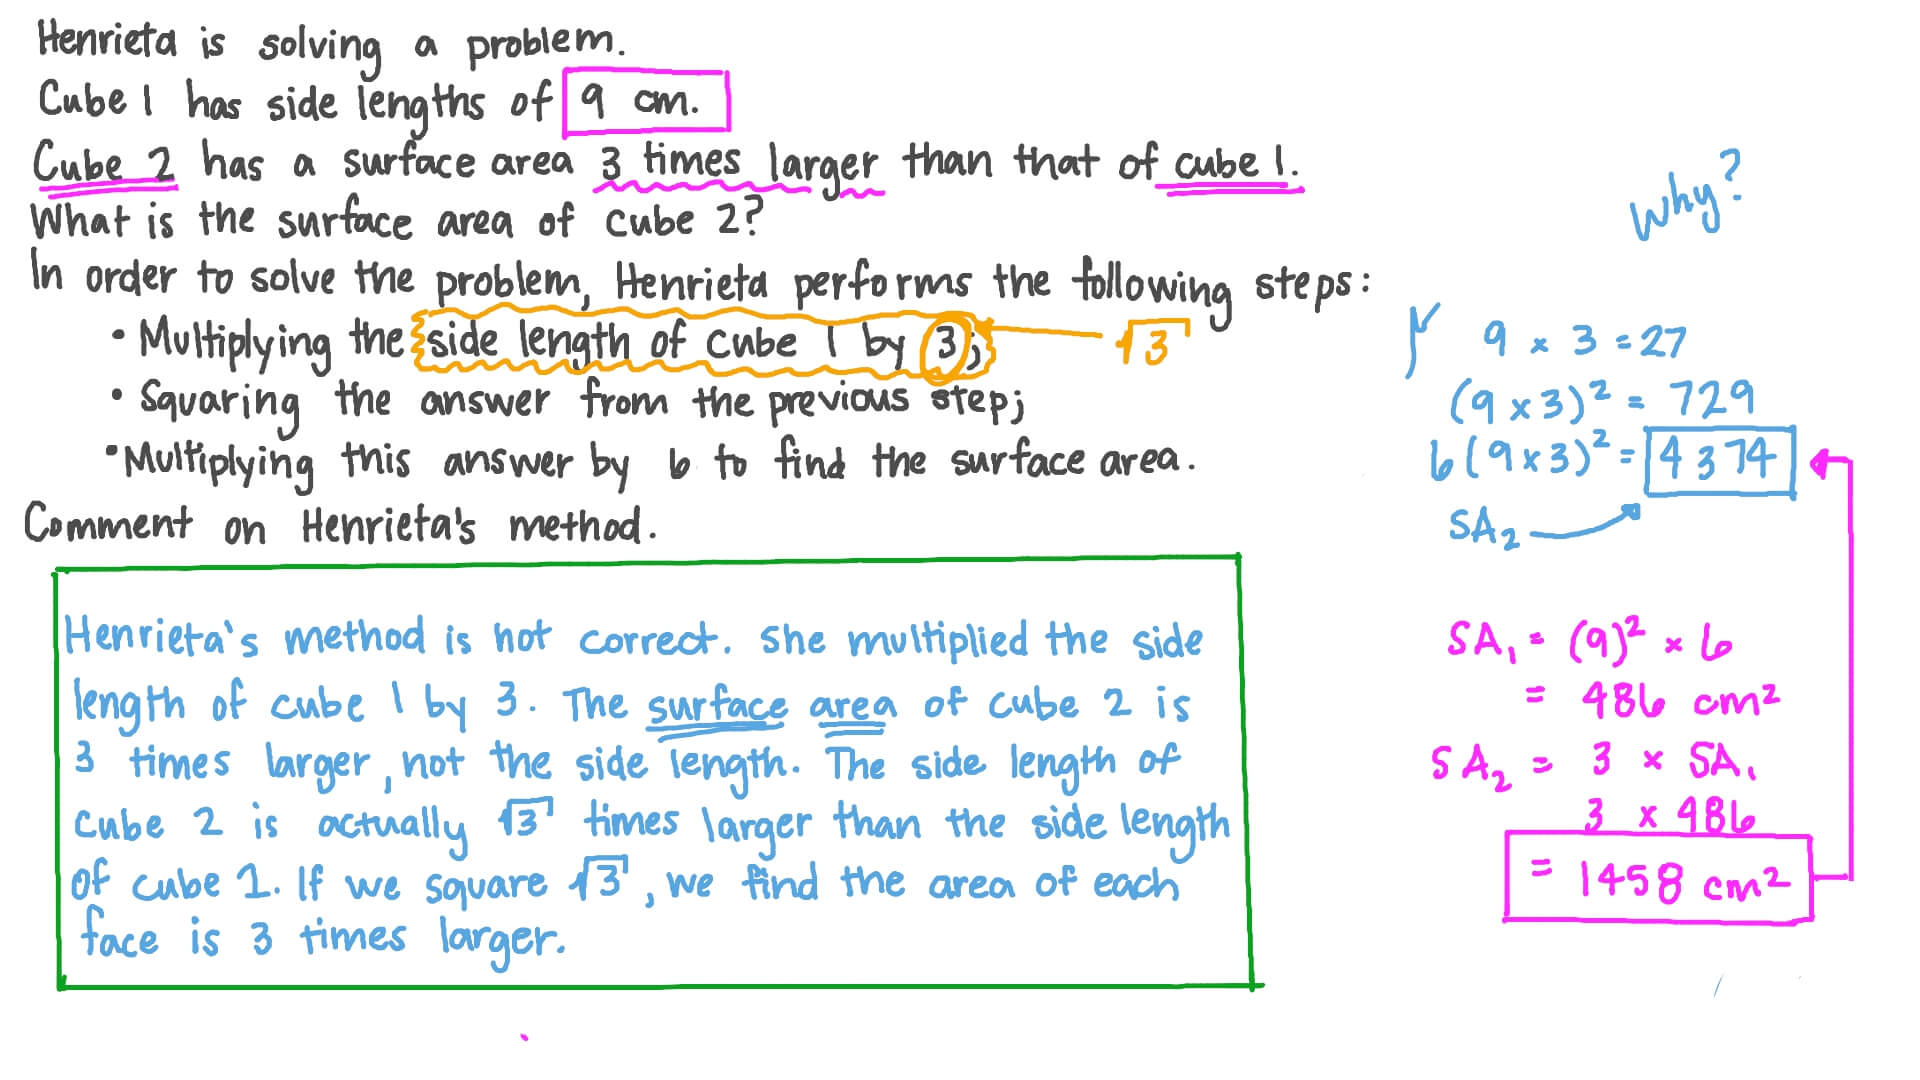 Henrieta is solving a problem.
Cube 1 has side lengths of 9 cm.
Cube 2 has a surface area 3 times larger than that of cube 1.
What is the surface area of cube 2?
In order to solve the problem, Henrieta performs the following steps:
• Multiplying the side length of cube 1 by 3; √3
• Squaring the answer from the previous step;
• Multiplying this answer by 6 to find the surface area.
Comment on Henrieta's method.
Henrieta's method is not correct. She multiplied the side
length of cube 1 by 3. The surface area of cube 2 is
3 times larger, not the side length. The side length of
cube 2 is actually √3 times larger than the side length
of cube 1. If we square √3, we find the area of each
face is 3 times larger.
Why?
9 × 3 = 27
(9 × 3)² = 729
6(9×3)² = 4374
SA₂
SA₁ = (9)² × 6
= 486 cm²
SA₂ = 3 × SA₁
3 × 486
= 1458 cm²